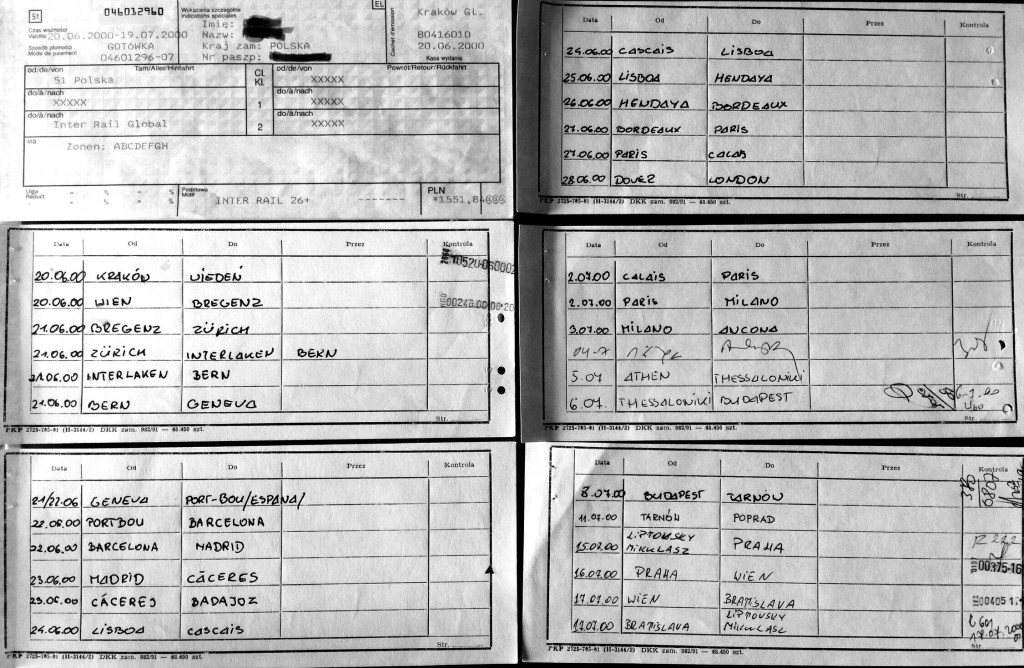 51 046012960
Wskazania szczególne
Indications spéciales
EL
Kraków Gł.
Czas ważności
Validité 20.06.2000-19.07.2000
Imię:
Nazw:
80416010
Sposób płatności
Mode de paiement
GOTÓWKA
Kraj zam: POLSKA
20.06.2000
04601296-07
Nr paszp:
Kasa wydania
Cachet d'émission
od/de/von Tam/Aller/Hinfahrt
51 Polska
Cl. Kl.
od/de/von Powrót/Retour/Rückfahrt
XXXXX
do/à/nach
XXXXX
1
do/à/nach
XXXXX
do/à/nach
Inter Rail Global
2
do/à/nach
XXXXX
via
Zonen: ABCDEFGH
Ulga
Réduct
- % - % - %
Podstawa
Motif
INTER RAIL 26+
-------
PLN
*1551,84
Data Od Do Przez Kontrola
24.06.00 CASCAIS LISBOA
25.06.00 LISBOA HENDAYA
26.06.00 HENDAYA BORDEAUX
27.06.00 BORDEAUX PARIS
27.06.00 PARIS CALAIS
28.06.00 DOVER LONDON
Str.
PKP 2725-705-01 (H-3144/2) DKK zam. 982/91 — 48.450 szt.
Data Od Do Przez Kontrola
20.06.00 KRAKÓW WIEDEŃ
20.06.00 WIEN BREGENZ
21.06.00 BREGENZ ZÜRICH
21.06.00 ZÜRICH INTERLAKEN BERN
21.06.00 INTERLAKEN BERN
21.06.00 BERN GENEVA
Str.
PKP 2725-705-01 (H-3144/2) DKK zam. 982/91 — 48.450 szt.
Data Od Do Przez Kontrola
2.07.00 CALAIS PARIS
2.07.00 PARIS MILANO
3.07.00 MILANO ANCONA
04-7
5.07 ATHEN THESSALONIKI
6.07. THESSALONIKI BUDAPEST
Str.
PKP 2725-705-01 (H-3144/2) DKK zam. 982/91 — 48.450 szt.
Data Od Do Przez Kontrola
21/22.06 GENEVA PORT-BOU/ESPANA/
22.06.00 PORTBOU BARCELONA
22.06.00 BARCELONA MADRID
23.06.00 MADRID CÁCERES
23.06.00 CÁCERES BADAJOZ
24.06.00 LISBOA CASCAIS
Str.
PKP 2725-705-01 (H-3144/2) DKK zam. 982/91 — 48.450 szt.
Data Od Do Przez Kontrola
8.07.00 BUDAPEST TARNÓW
11.07.00 TARNÓW POPRAD
15.07.00 LIPTOVSKY MIKULASZ PRAHA
16.07.00 PRAHA WIEN
00375-16
17.07.00 WIEN BRATISLAVA
17.07.00 BRATISLAVA LIPTOVSKY MIKULASZ
PKP 2725-705-01 (H-3144/2) DKK zam. 982/91 — 48.450 szt.